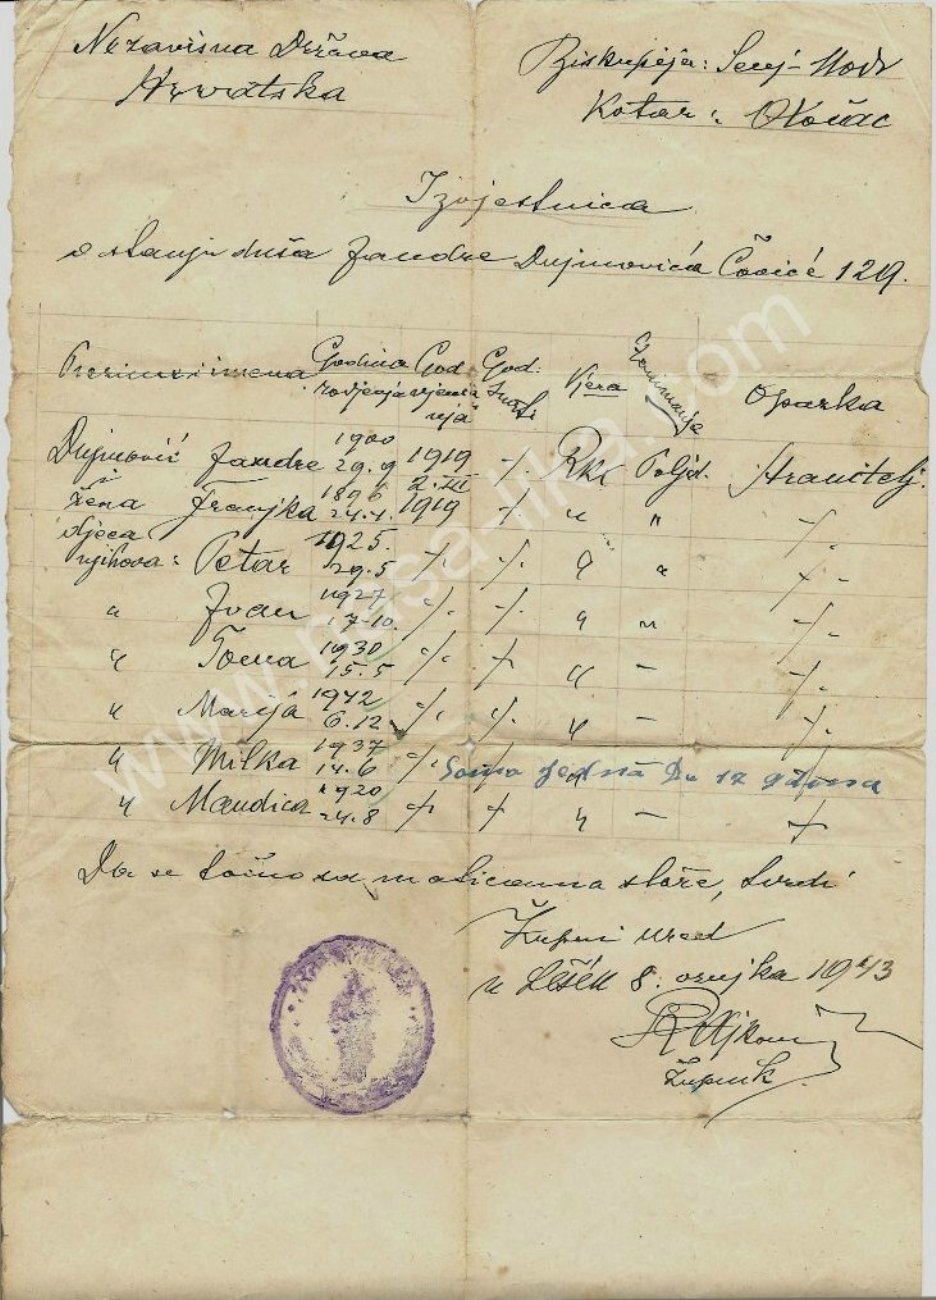 Nezavisna Država
Hrvatska
Biskupija: Senj-Modr
Kotar: Otočac
Izvjestnica
o stanju duša Jandre Dujmovića Čovići 129.
Prezime i imena Godina rodjenja God. vjenčanja God. smrti Vjera Zanimanje Opazka
Dujmović Jandre 1900 29.9 1919 -/- Rkt Poljd. Hranitelj.
i
žena Franjka 1896 24.4. 2.III 1919 -/- " " -/-
djeca
njihova: Petar 1925. 29.5 -/- -/- " " -/-
" Ivan 1927 17-10. -/- -/- " " -/-
" Toma 1930 15.5 -/- -/- " — -/-
" Marija 1942 6.12 -/- -/- " — -/-
" Milka 1937 14.6 -/- Samo jedna do 17 godina
" Mandica 1920 24.8 -/- -/- " — -/-
Da se točno sa maticama slaže, tvrdi
Župni ured
u Lešću 8. ožujka 1943
župnik
www.nasa-lika.com